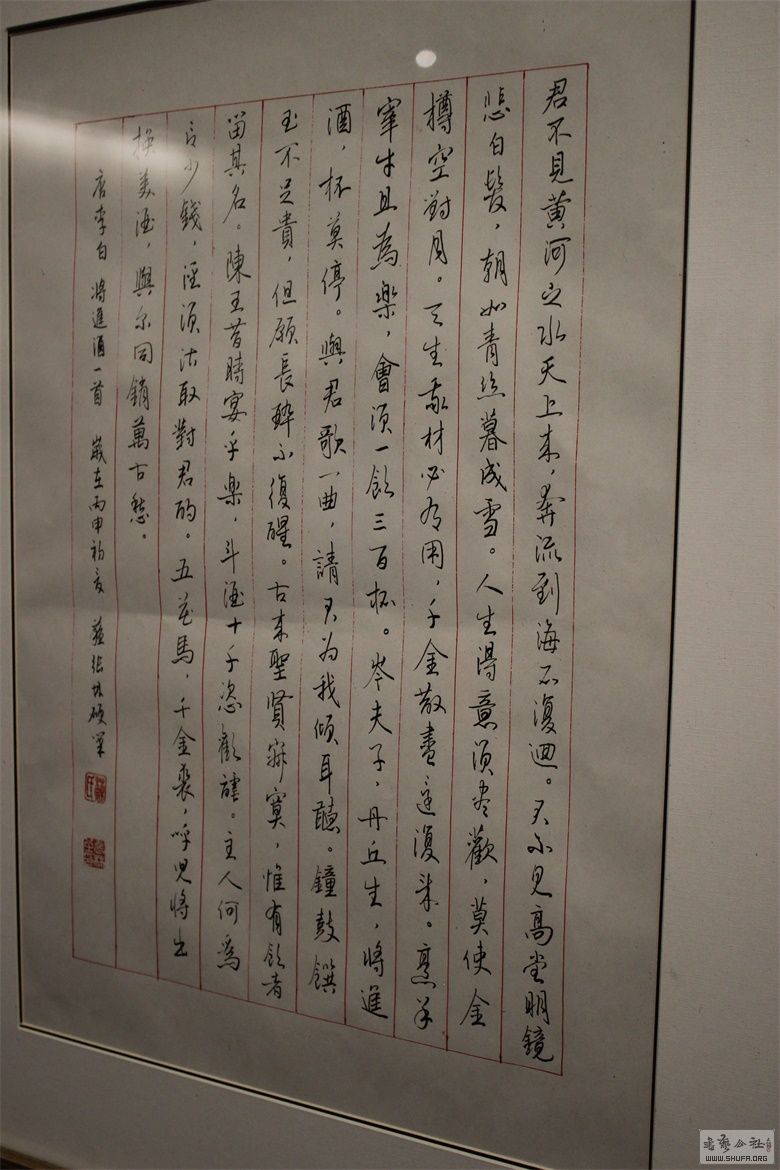 君不見黃河之水天上来，奔流到海不復迴。君不見高堂明鏡
悲白髮，朝如青絲暮成雪。人生得意須盡歡，莫使金
樽空對月。天生我材必有用，千金散盡還復来。烹羊
宰牛且為樂，會須一飲三百杯。岑夫子，丹丘生，將進
酒，杯莫停。與君歌一曲，請君为我傾耳聽。鐘鼓饌
玉不足貴，但願長醉不復醒。古来聖賢寂寞，惟有飲者
留其名。陳王昔時宴平樂，斗酒十千恣歡謔。主人何為
言少錢，徑須沽取對君酌。五花馬，千金裘，呼兒將出
換美酒，與尔同銷萬古愁。
唐李白將進酒一首 歲在丙申初夏
書藝公社
WWW.SHUFA.ORG